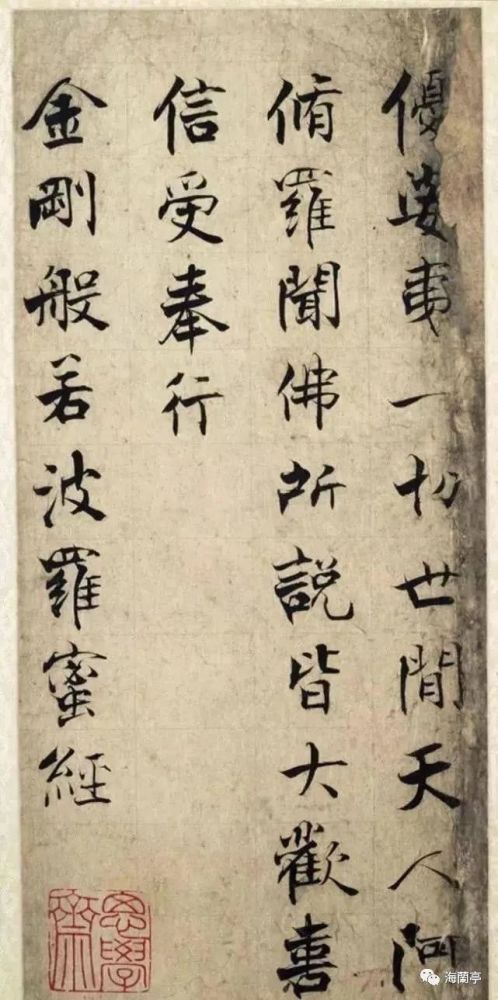 優婆夷一切世間天人阿
脩羅聞佛所說皆大歡喜
信受奉行
金剛般若波羅蜜經
思學齋
海蘭亭